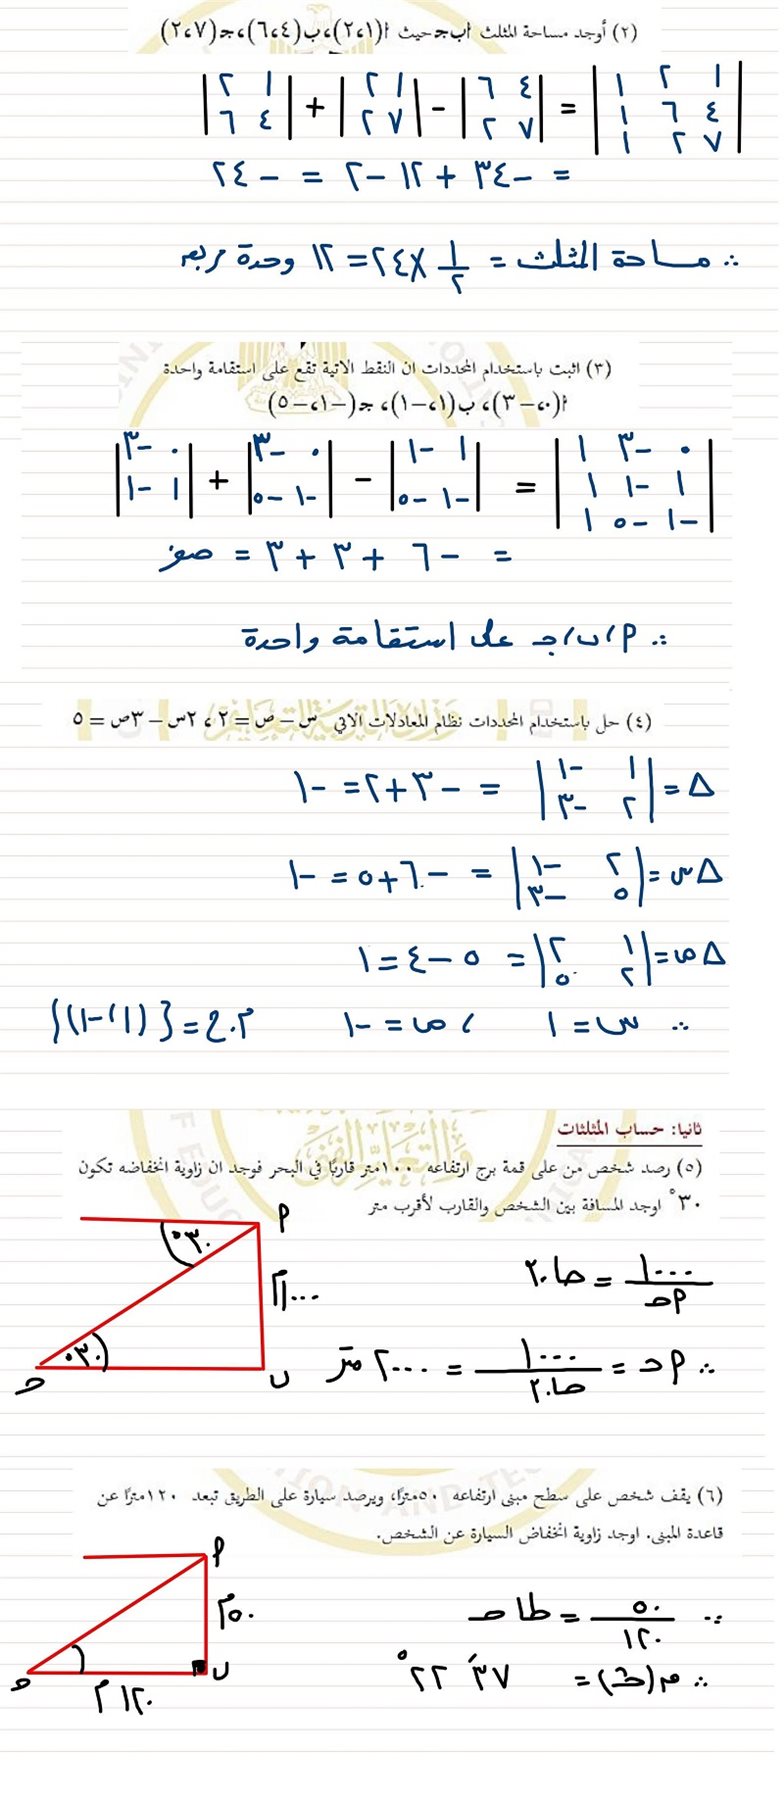 (٢) أوجد مساحة المثلث أ ب جـ حيث أ(٢،١)، ب(٦،٤)، جـ(٢،٧)
| ١ ٢ ١ | = | ٤ ٦ | - | ١ ٢ | + | ١ ٢ |
| ٤ ٦ ١ | | ٧ ٢ | | ٧ ٢ | | ٤ ٦ |
| ٧ ٢ ١ |
= -٣٤ + ١٢ - ٢ = - ٢٤
∴ مساحة المثلث = ١/٢ × ٢٤ = ١٢ وحدة مربعه
(٣) اثبت باستخدام المحددات ان النقط الاتية تقع على استقامة واحدة
أ(٠، -٣)، ب(١، -١)، جـ(-١، -٥)
| ٠ -٣ ١ | = | ١ -١ | - | ٠ -٣ | + | ٠ -٣ |
| ١ -١ ١ | | -١ -٥ | | -١ -٥ | | ١ -١ |
| -١ -٥ ١ |
= -٦ + ٣ + ٣ = صفر
∴ أ، ب، جـ على استقامة واحدة
(٤) حل باستخدام المحددات نظام المعادلات الاتي س - ص = ٢ ، ٢س - ٣ص = ٥
Δ = | ١ -١ | = -٣ + ٢ = -١
| ٢ -٣ |
Δس = | ٢ -١ | = -٦ + ٥ = -١
| ٥ -٣ |
Δص = | ١ ٢ | = ٥ - ٤ = ١
| ٢ ٥ |
∴ س = ١ ، ص = -١ م.ح = {(١، -١)}
ثانيا: حساب المثلثات
(٥) رصد شخص من على قمة برج ارتفاعه ١٠٠٠متر قاربًا في البحر فوجد ان زاوية انخفاضه تكون
٣٠° اوجد المسافة بين الشخص والقارب لأقرب متر
أ
٣٠°
١٠٠٠م
٣٠°
حـ
ب
١٠٠٠/أحـ = حا٣٠
∴ أحـ = ١٠٠٠/حا٣٠ = ٢٠٠٠ متر
(٦) يقف شخص على سطح مبنى ارتفاعه ٥٠مترًا، ويرصد سيارة على الطريق تبعد ١٢٠مترًا عن
قاعدة المبنى. اوجد زاوية انخفاض السيارة عن الشخص.
أ
٥٠م
ب
حـ
١٢٠ م
∴ ٥٠/١٢٠ = طا حـ
∴ م(حـ) = ٣٧′ ٢٢°